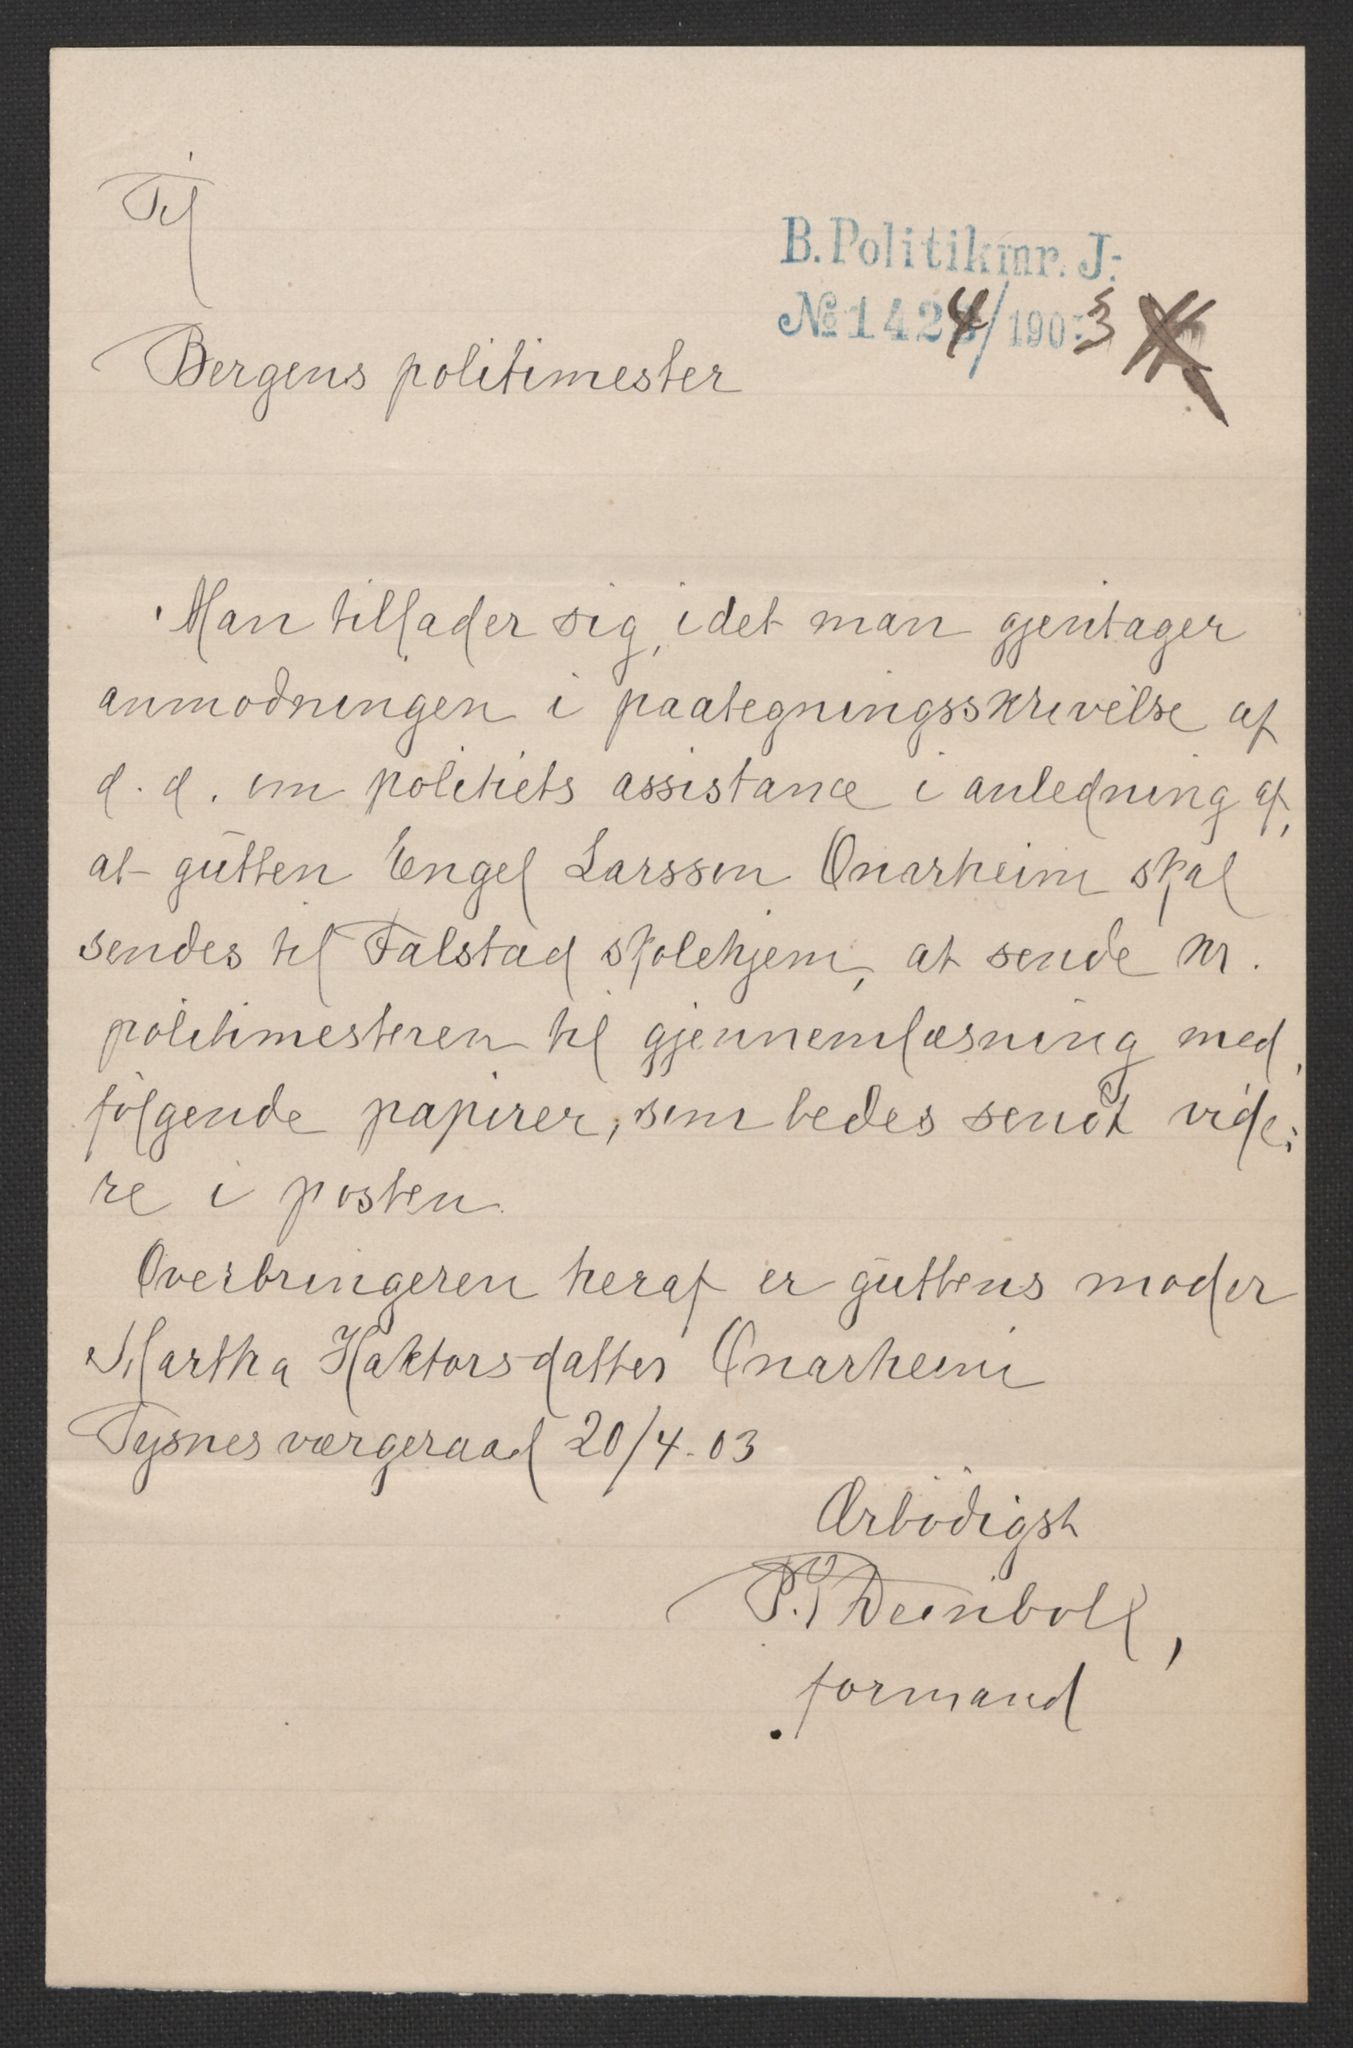 Til
B. Politikmr. J:
№ 1424/1903
Bergens politimester
Man tillader sig, idet man gjentager
anmodningen i paategningsskrivelse af
d. d. om politiets assistance i anledning af,
at gutten Engel Larsson Onarheim skal
sendes til Falstad skolehjem, at sende hr.
politimesteren til gjennemlæsning med
følgende papirer, som bedes sendt vide-
re i posten.
Overbringeren heraf er guttens moder
Martha Haktorsdatter Onarheim
Tysnes værgeraad 20/4-03
Ærbødigst
P. Deinboll,
formand